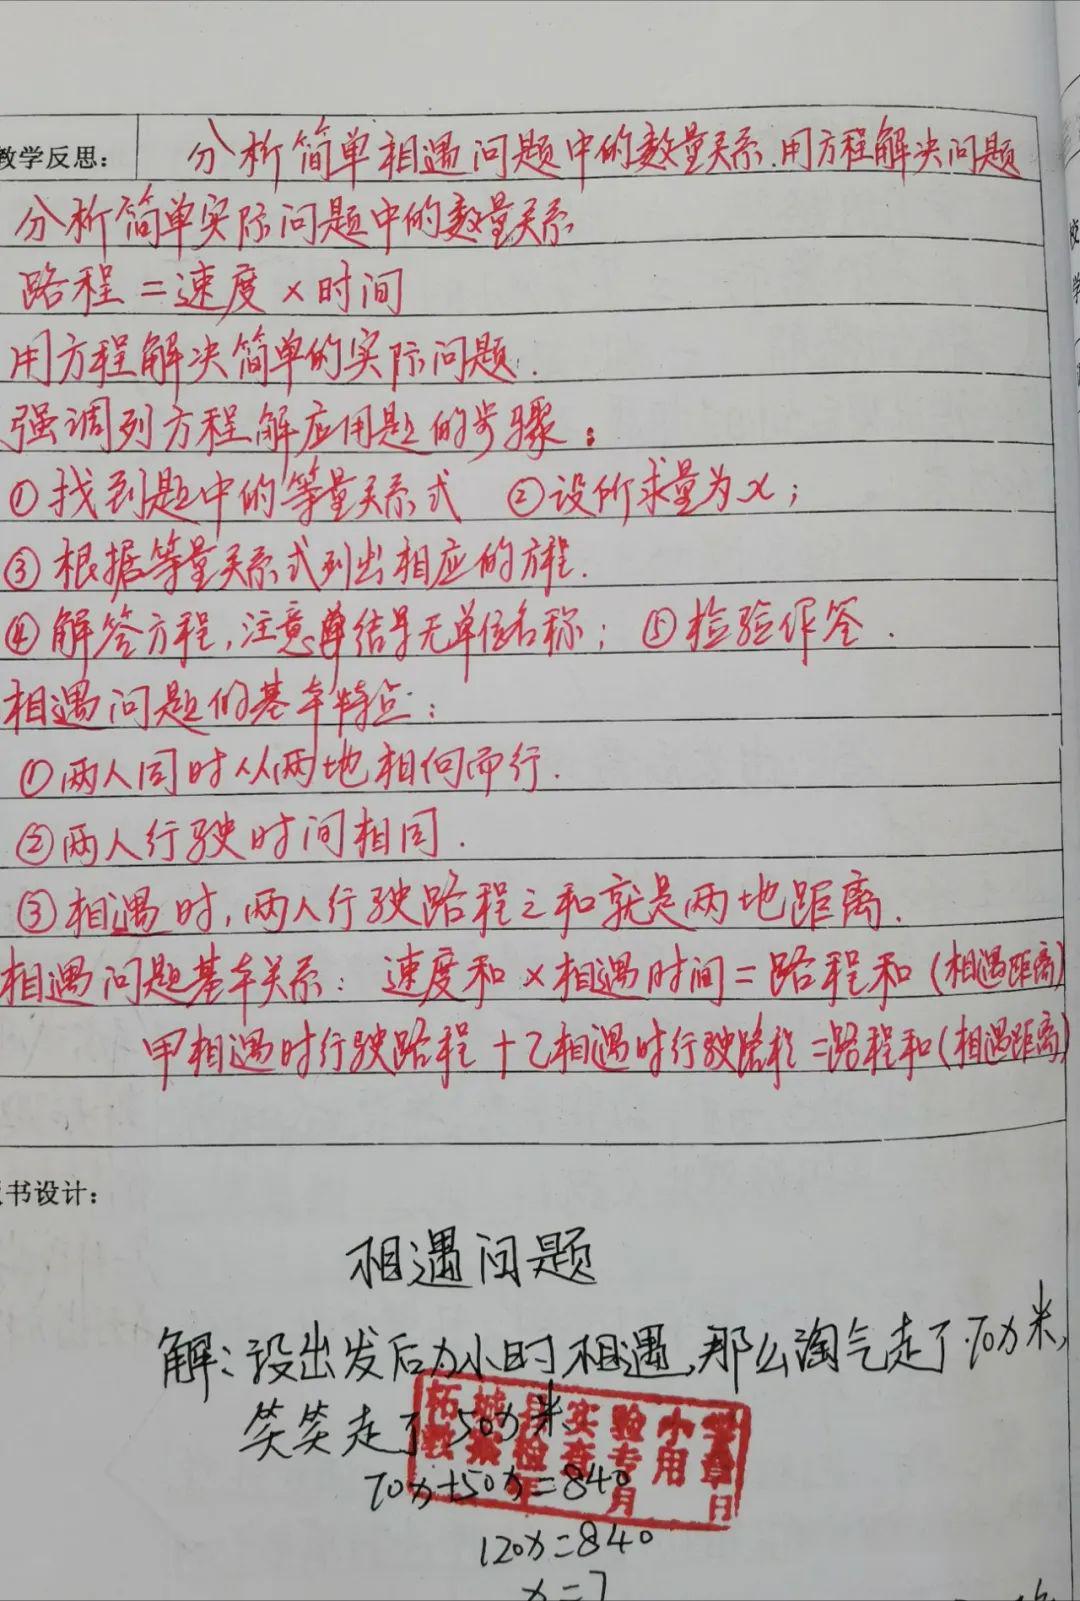 教学反思： 分析简单相遇问题中的数量关系.用方程解决问题
分析简单实际问题中的数量关系
路程=速度×时间
用方程解决简单的实际问题.
强调列方程解应用题的步骤：
①找到题中的等量关系式 ②设所求量为x；
③根据等量关系式列出相应的方程.
④解答方程，注意单结果无单位名称； ⑤检验作答.
相遇问题的基本特点：
①两人同时从两地相向而行.
②两人行驶时间相同.
③相遇时，两人行驶路程之和就是两地距离.
相遇问题基本关系：速度和×相遇时间=路程和(相遇距离)
甲相遇时行驶路程+乙相遇时行驶路程=路程和(相遇距离)
书设计：
相遇问题
解：设出发后x小时相遇，那么淘气走了70x米，
笑笑走了50x米
柘城县实验小学
教案检查专用章
年月日
70x+50x=840
120x=840
x=7